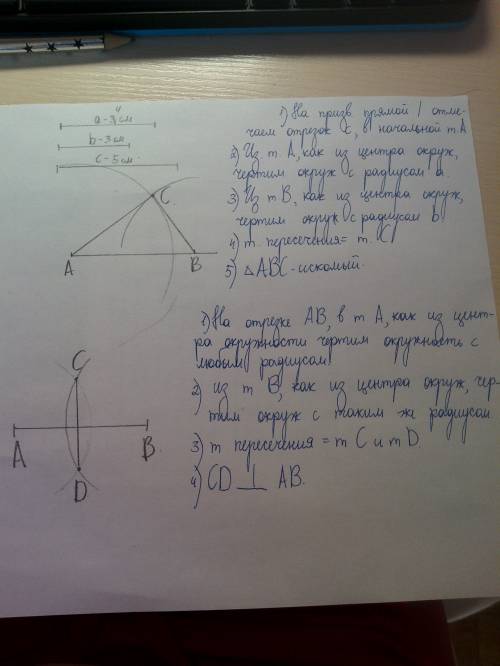 4
a-3см
b-3см
c-5см.
C
A
B
1) На призв. прямой l отме-
чаем отрезок C, в начальной т.A
2) Из т. A, как из центра окруж,
чертим окруж с радиусом a.
3) Из т B, как из центра окруж,
чертим окруж с радиусом b
4) т. пересечения= т. C
5) △ABC-искомый.
1) На отрезке AB, в т A, как из цент-
ра окружности чертим окружность с
любым радиусом
2) из т B, как из центра окруж, чер-
тим окруж с таким же радиусом.
3) т пересечения = т C и т D
4) CD ⊥ AB.
C
A
B
D